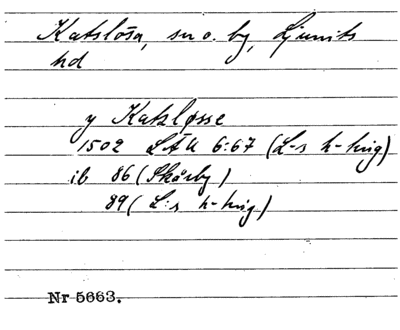 Katslösa, sn o. by, Ljunits
hd
y Katzløsse
1502 LÄU 6:67 (L-s h-hrig)
ib 86 (Skårby)
89 (L:s h-hrig)
Nr 5663.